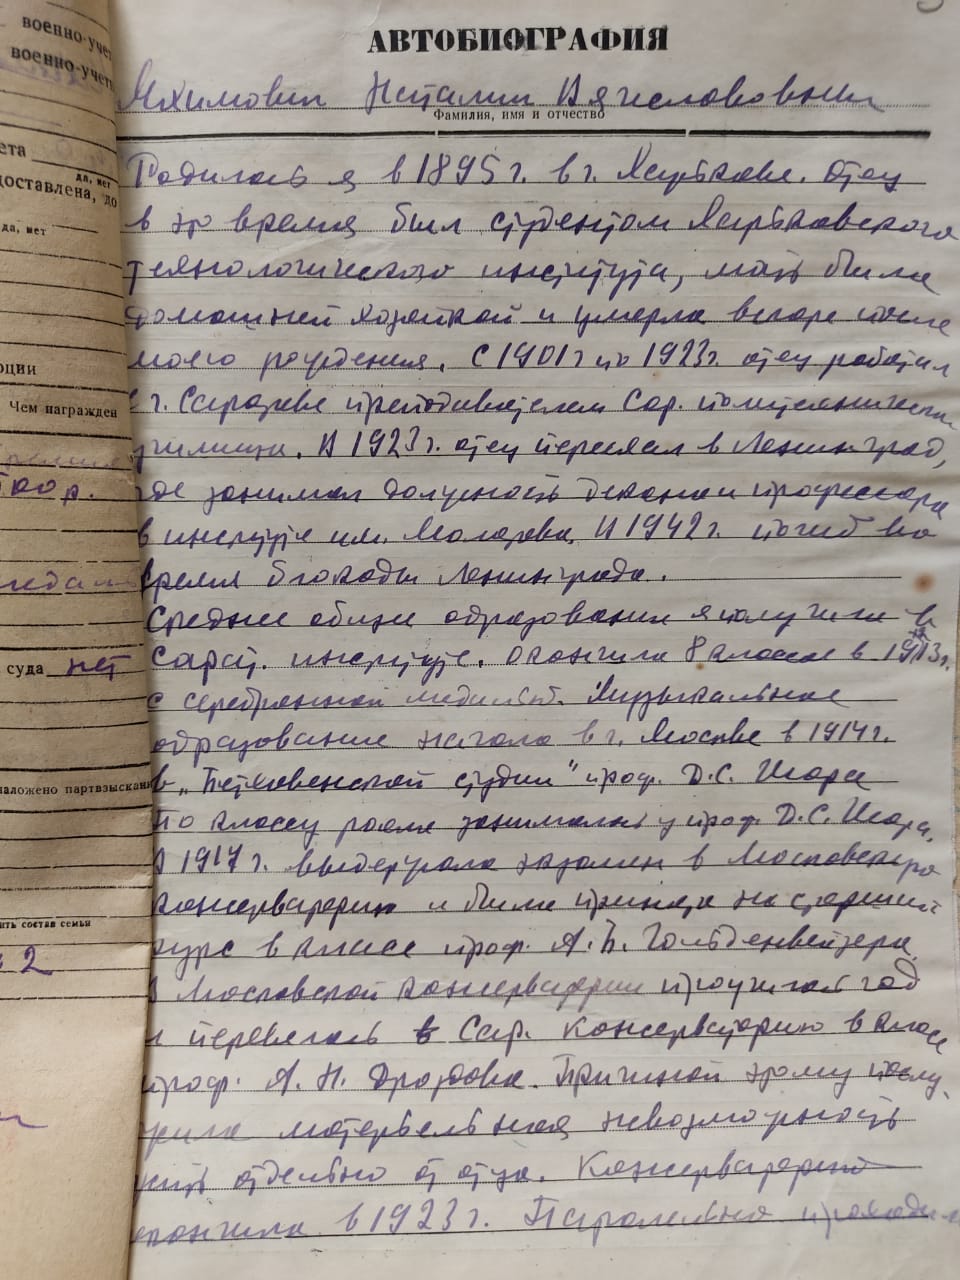 военно-учет
военно-учетн
ета
да, нет
доставлена, до
да, нет
оции
Чем награжден
суда нет
наложено партвзыскани
ить состав семьи
2
АВТОБИОГРАФИЯ
Яхимович Наталии Вячеславовны
Фамилия, имя и отчество
Родилась я в 1895 г. в г. Харькове. Отец
в это время был студентом Харьковского
технологического института, мать была
домашней хозяйкой и умерла вскоре после
моего рождения. С 1901 г по 1923 г. отец работал
в г. Саратове преподавателем Сар. политехническ.
училища. В 1923 г. отец переехал в Ленинград,
где занимал должность декана и профессора
в институте им. Молотова. В 1942 г. погиб во
время блокады Ленинграда.
Среднее общее образование я получила в
Сарат. институте. Окончила 8 классов в 1913 г.
с серебренной медалью. Музыкальное
образование начала в г. Москве в 1914 г.
в „Бетховенской студии" проф. Д.С. Шора
По классу рояля занималась у проф. Д.С. Шора.
В 1917 г. выдержала экзамен в Московскую
консерваторию и была принята на старший
курс в класс проф. А.Б. Гольденвейзера.
В Московской консерватории проучилась год
и перевелась в Сар. консерваторию в класс
проф. А.Н. Дроздова. Причиной этому послу-
жила материальная невозможность
жить отдельно от отца. Консерваторию
окончила в 1923 г. Параллельно проходил